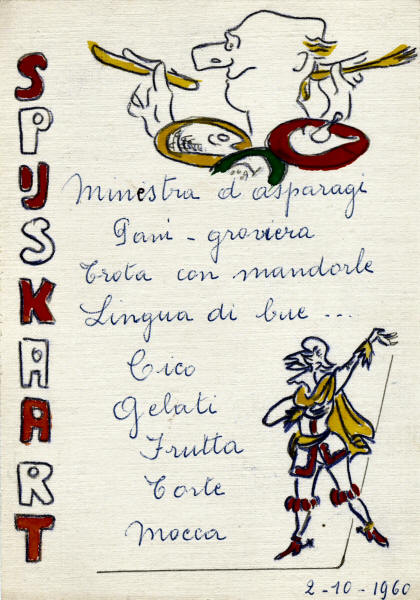 SPIJSKAART
Minestra d'asparagi
Pani - groviera
Trota con mandorle
Lingua di bue ...
Cico
Gelati
Frutta
Torte
Mocca
2-10-1960